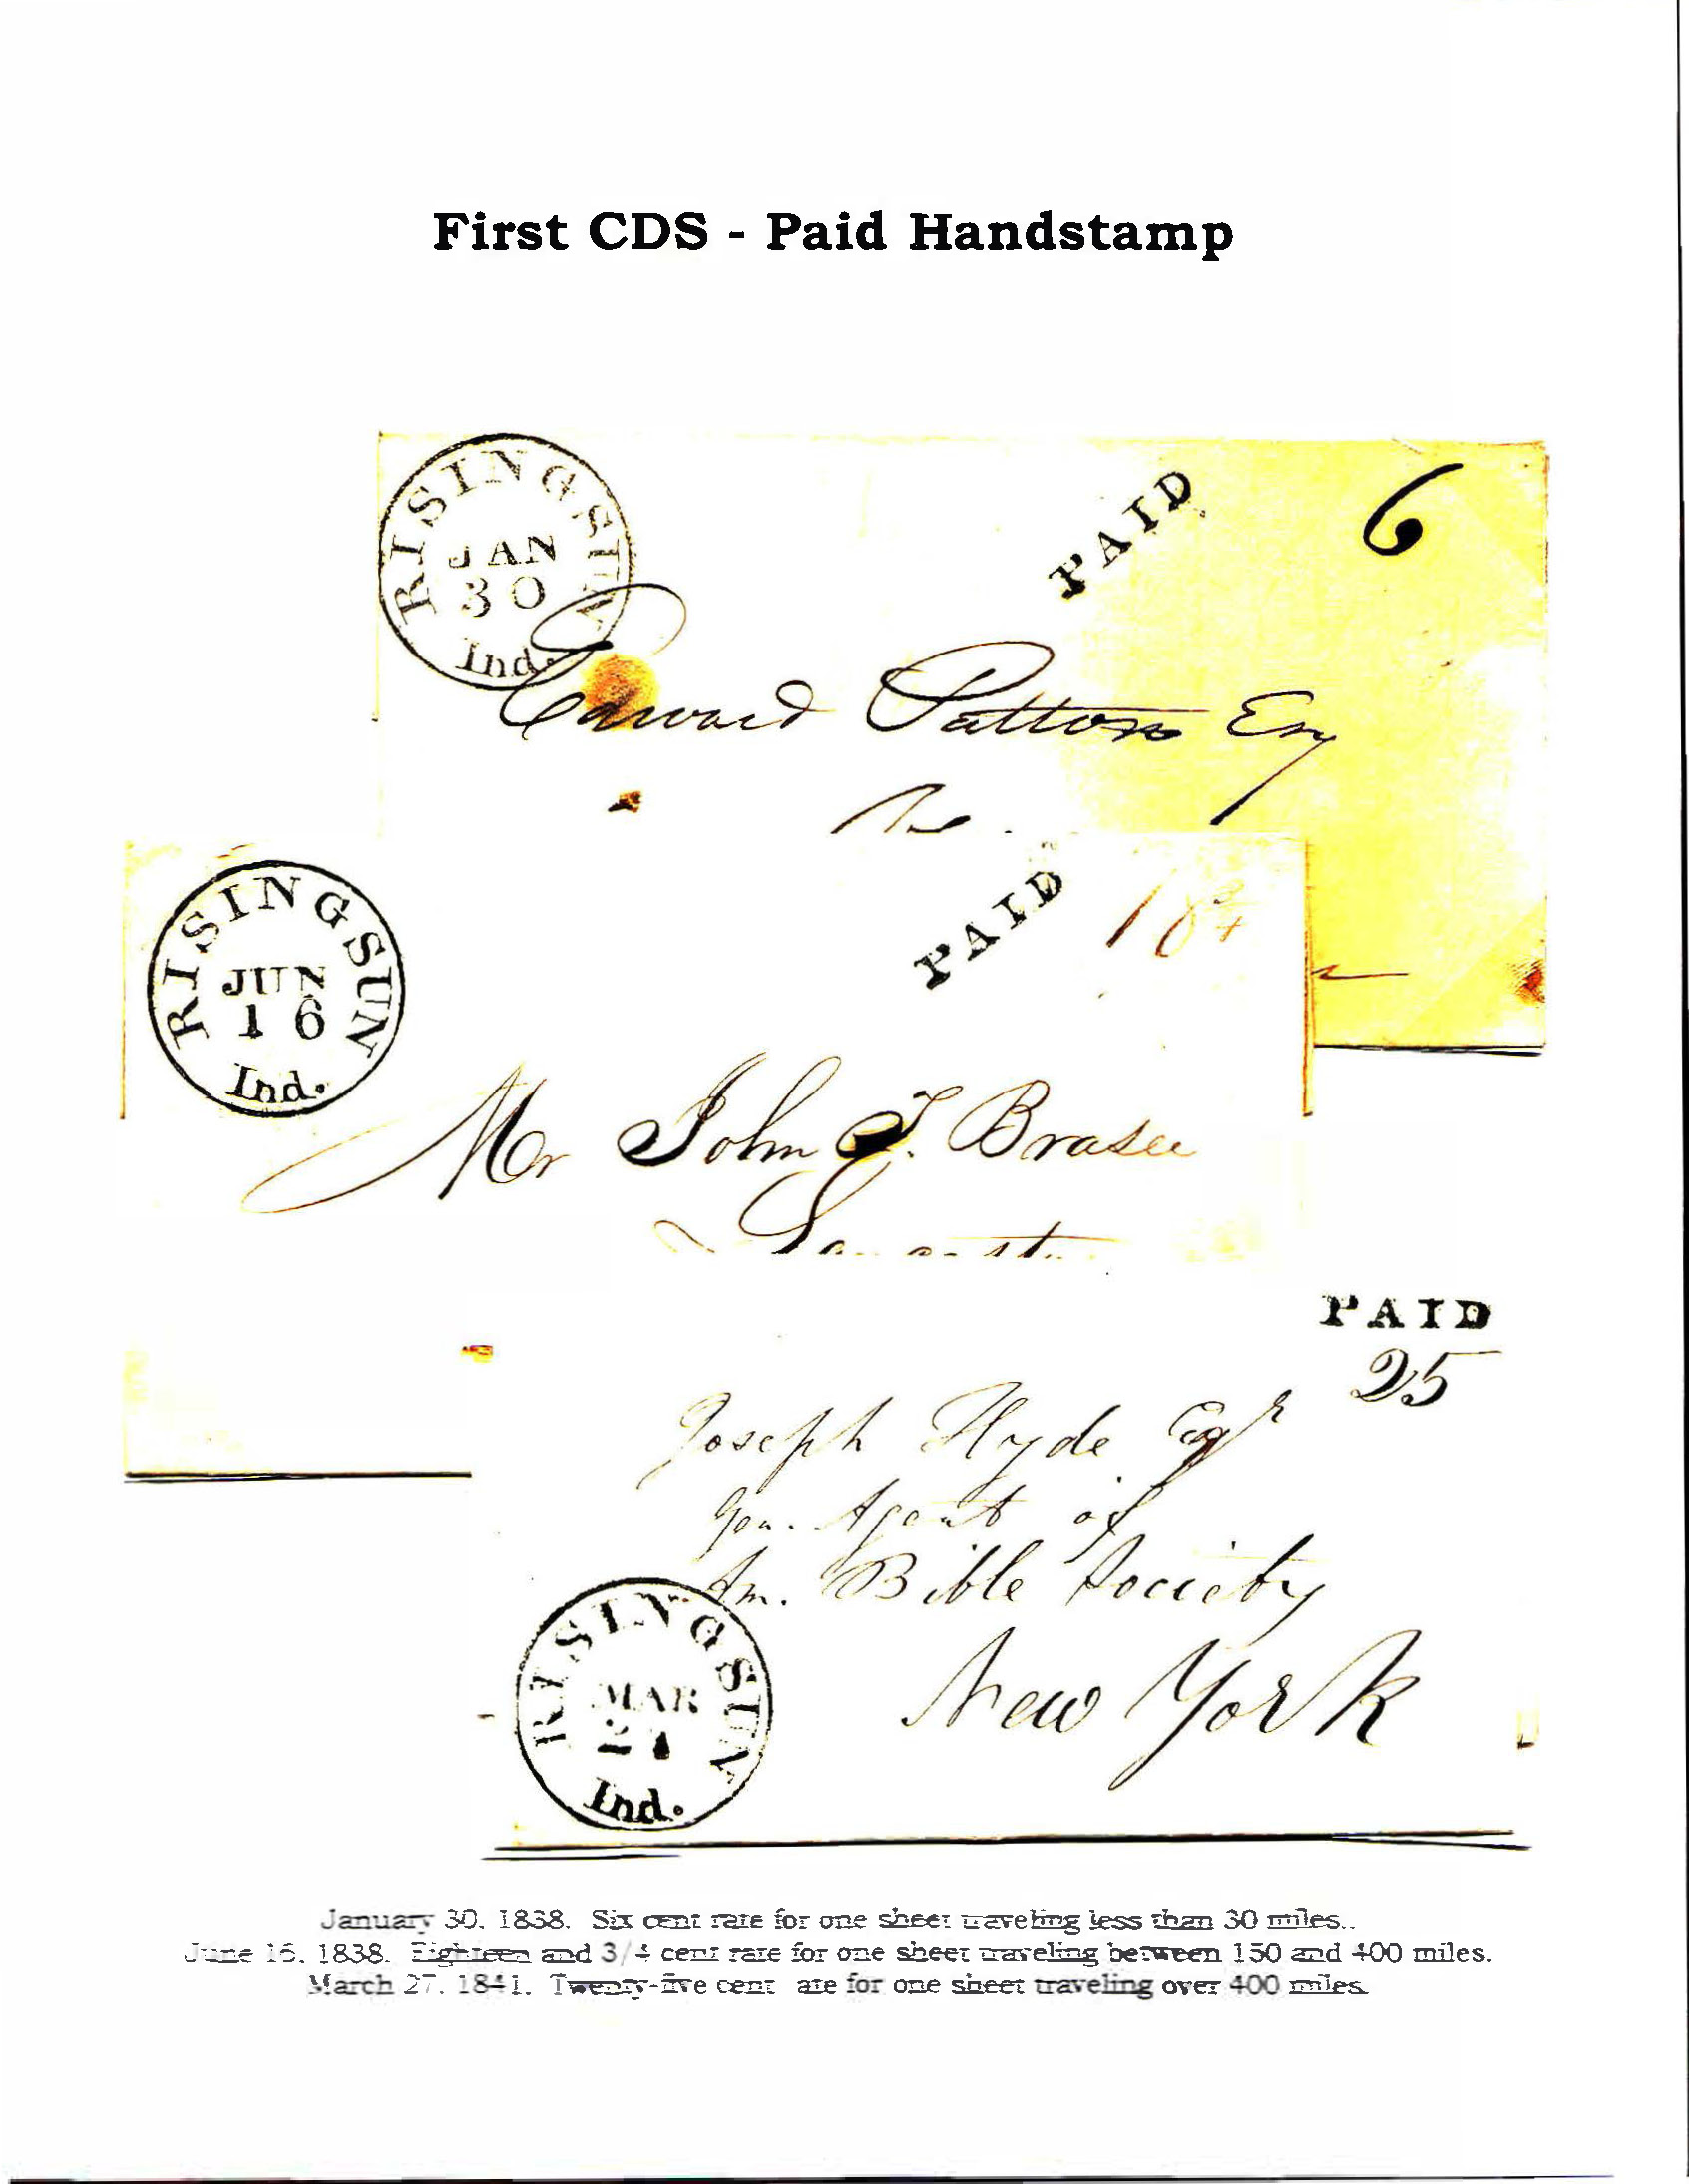 First CDS - Paid Handstamp
RISINGSUN
JAN
30
Ind.
PAID
6
Edward Patton Esq
RISINGSUN
JUN
16
Ind.
PAID
18 3/4
Mr John T. Brasee
PAID
25
Joseph Hyde Esqr
Gen. Agent of
Am. Bible Society
New York
RISINGSUN
MAR
Ind.
January 30. 1838. Six cent rate for one sheet traveling less than 30 miles..
June 16. 1838. Eighteen and 3/4 cent rate for one sheet traveling between 150 and 400 miles.
March 27. 1841. Twenty-five cent ate for one sheet traveling over 400 miles.